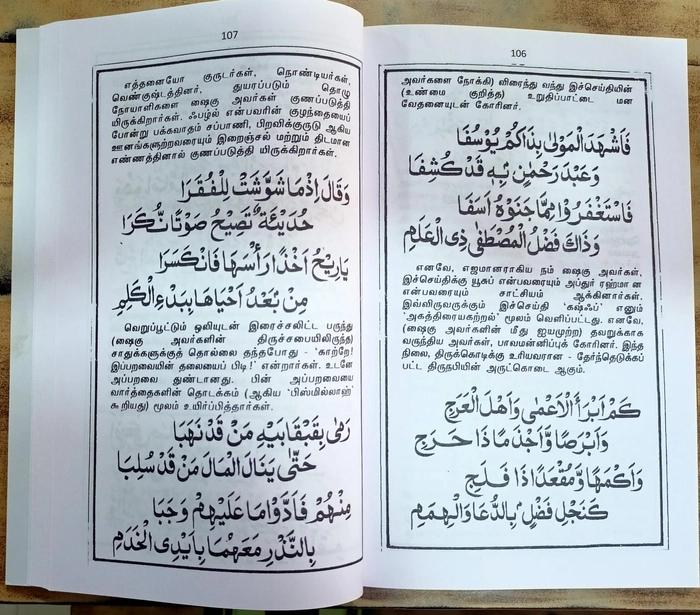 106
அவர்களை நோக்கி) விரைந்து வந்து இச்செய்தியின்
(உண்மை குறித்த) உறுதிப்பாட்டை மன
வேதனையுடன் கோரினர்.
فَاَشْهَدَ الْمَوْلٰى بِذَاكُمْ يُوْسُفَا
وَعَبْدَ رَحْمٰنٍ بِهٖ قَدْ كُشِفَا
فَاسْتَغْفَرُوْا مِمَّا جَنَوْهُ اَسَفَا
وَذَاكَ فَضْلُ الْمُصْطَفٰى ذِى الْعَلَمِ
எனவே, எஜமானராகிய நம் ஷைகு அவர்கள்,
இச்செய்திக்கு யூசுப் என்பவரையும் அப்துர் ரஹ்மான
என்பவரையும் சாட்சியம் ஆக்கினார்கள்.
இவ்விருவருக்கும் இச்செய்தி 'கஷ்ஃப்' எனும்
'அகத்திரையகற்றல்' மூலம் வெளிப்பட்டது. எனவே,
(ஷைகு அவர்களின் மீது ஐயமுற்ற) தவறுக்காக
வருந்திய அவர்கள், பாவமன்னிப்புக் கோரினர். இந்த
நிலை, திருக்கொடிக்கு உரியவரான - தேர்ந்தெடுக்கப்
பட்ட திருநபியின் அருட்கொடை ஆகும்.
كَمْ اَبْرَأَ الْاَعْمٰى وَاَهْلَ الْعَرَجِ
وَاَبْرَصًا وَّاَجْذَمَا ذَا حَرَجِ
وَاَكْمَهًا وَّمُقْعَدًا ذَا فَلَجِ
كَنَجْلِ فَضْلٍ بِالدُّعَا وَالْهِمَمِ
107
எத்தனையோ குருடர்கள், நொண்டியர்கள்,
வெண்குஷ்டத்தினர், துயரப்படும் தொழு
நோயாளிகளை ஷைகு அவர்கள் குணப்படுத்தி
யிருக்கிறார்கள். ஃபழ்ல் என்பவரின் குழந்தையைப்
போன்று பக்கவாதம் சப்பாணி, பிறவிக்குருடு ஆகிய
ஊனங்களுற்றவரையும் இறைஞ்சல் மற்றும் திடமான
எண்ணத்தினால் குணப்படுத்தி யிருக்கிறார்கள்.
وَقَالَ اِذْمَا شَوَّشَتْ لِلْفُقَرَا
حُدَيْئَةٌ تَصِيْحُ صَوْتًا نُّكُرَا
يَارِيْحُ اَخْذًا رَأْسَهَا فَانْكَسَرَا
مِنْ بُعْدُ اَحْيَاهَا بِبَدْءِ الْكَلِمِ
வெறுப்பூட்டும் ஒலியுடன் இரைச்சலிட்ட பருந்து
(ஷைகு அவர்களின் திருச்சபையிலிருந்த)
சாதுக்களுக்குத் தொல்லை தந்தபோது - 'காற்றே!
இப்பறவையின் தலையைப் பிடி!' என்றார்கள். உடனே
அப்பறவை துண்டானது. பின் அப்பறவையை
வார்த்தைகளின் தொடக்கம் (ஆகிய 'பிஸ்மில்லாஹ்'
கூறியது) மூலம் உயிர்ப்பித்தார்கள்.
رَمٰى بِقَبْقَابَيْهِ مَنْ قَدْ نَهَبَا
حَتّٰى يَنَالَ الْمَالَ مَنْ قَدْ سُلِبَا
مِنْهُمْ فَاَدَّوْا مَا عَلَيْهِمْ وَجَبَا
بِالنَّذْرِ مَعَهُمَا بِاَيْدِى الْخَدَمِ